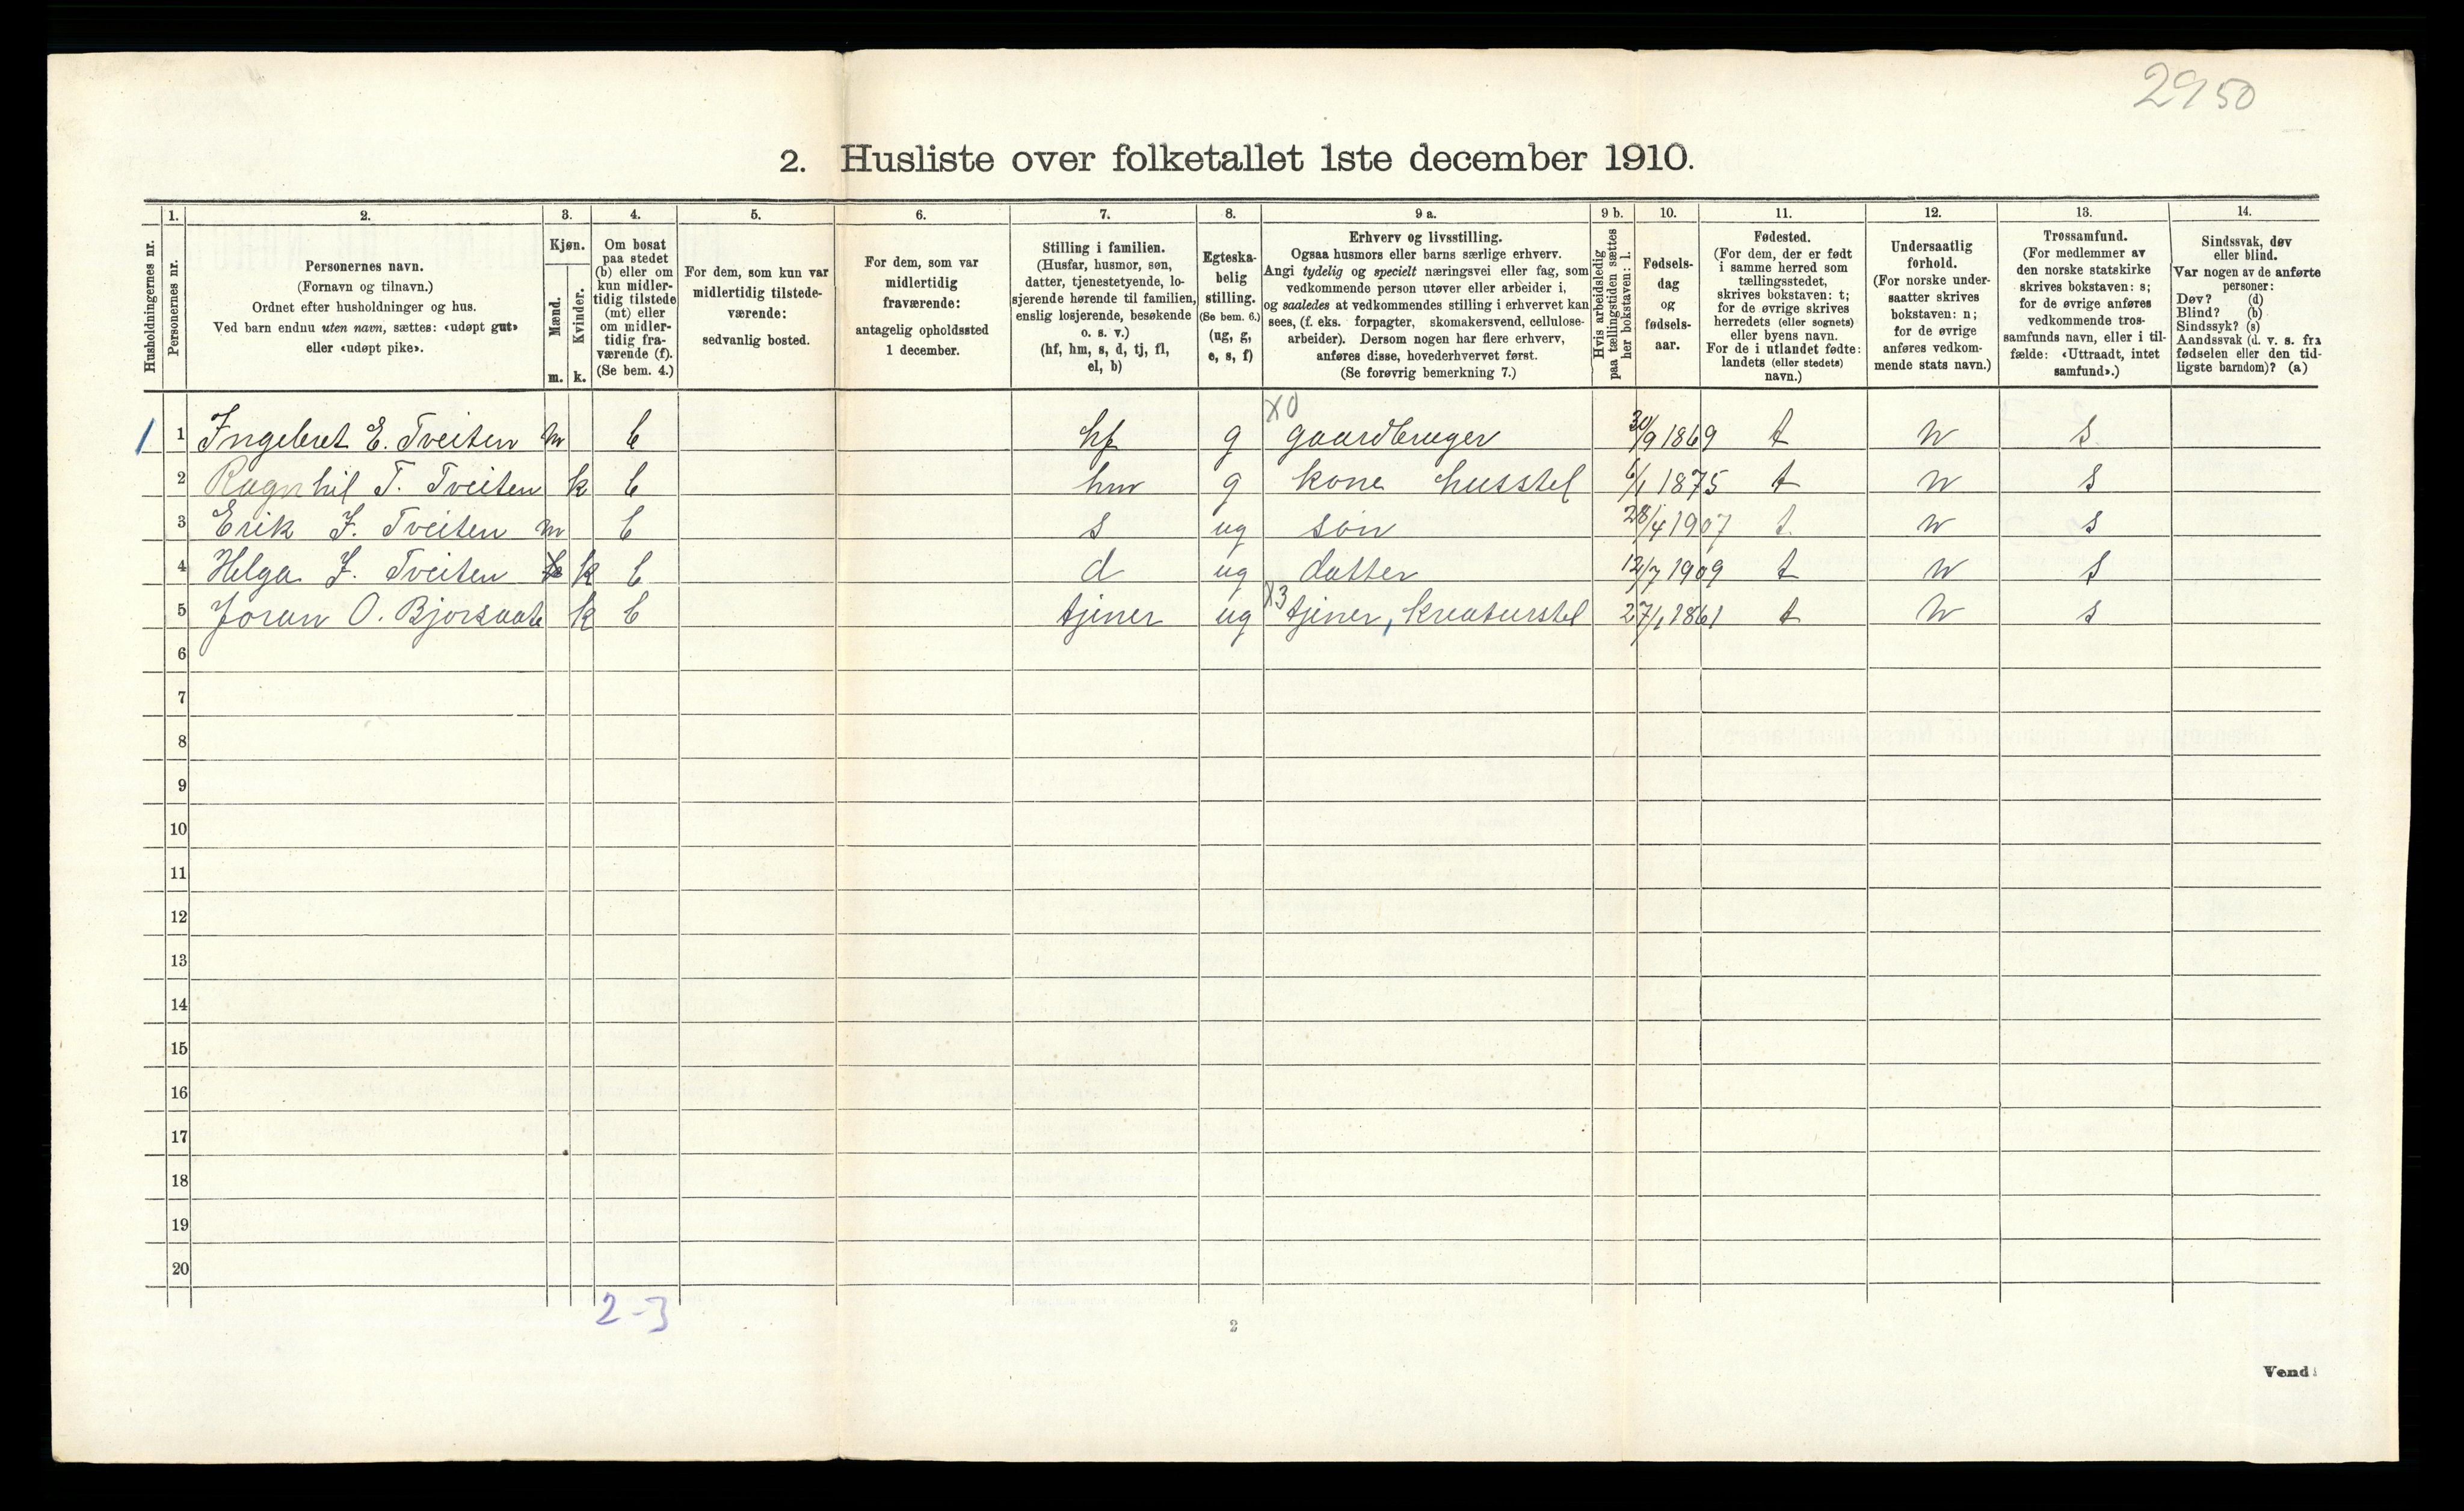 2950
2. Husliste over folketallet 1ste december 1910.
1. 2. 3. 4. 5. 6. 7. 8. 9 a. 9 b. 10. 11. 12. 13. 14.
Husholdningernes nr.
Personernes nr.
Personernes navn.
(Fornavn og tilnavn.)
Ordnet efter husholdninger og hus.
Ved barn endnu uten navn, sættes: «udøpt gut»
eller «udøpt pike».
Kjøn.
Mænd.
Kvinder.
m. k.
Om bosat
paa stedet
(b) eller om
kun midler-
tidig tilstede
(mt) eller
om midler-
tidig fra-
værende (f).
(Se bem. 4.)
For dem, som kun var
midlertidig tilstede-
værende:
sedvanlig bosted.
For dem, som var
midlertidig
fraværende:
antagelig opholdssted
1 december.
Stilling i familien.
(Husfar, husmor, søn,
datter, tjenestetyende, lo-
sjerende hørende til familien,
enslig losjerende, besøkende
o. s. v.)
(hf, hm, s, d, tj, fl,
el, b)
Egteska-
belig
stilling.
(Se bem. 6.)
(ug, g,
e, s, f)
Erhverv og livsstilling.
Ogsaa husmors eller barns særlige erhverv.
Angi tydelig og specielt næringsvei eller fag, som
vedkommende person utøver eller arbeider i,
og saaledes at vedkommendes stilling i erhvervet kan
sees, (f. eks. forpagter, skomakersvend, cellulose-
arbeider). Dersom nogen har flere erhverv,
anføres disse, hovederhvervet først.
(Se forøvrig bemerkning 7.)
Hvis arbeidsledig
paa tællingstiden sættes
her bokstaven: l.
Fødsels-
dag
og
fødsels-
aar.
Fødested.
(For dem, der er født
i samme herred som
tællingsstedet,
skrives bokstaven: t;
for de øvrige skrives
herredets (eller sognets)
eller byens navn.
For de i utlandet fødte:
landets (eller stedets)
navn.)
Undersaatlig
forhold.
(For norske under-
saatter skrives
bokstaven: n;
for de øvrige
anføres vedkom-
mende stats navn.)
Trossamfund.
(For medlemmer av
den norske statskirke
skrives bokstaven: s;
for de øvrige anføres
vedkommende tros-
samfunds navn, eller i til-
fælde: «Uttraadt, intet
samfund».)
Sindssvak, døv
eller blind.
Var nogen av de anførte
personer:
Døv? (d)
Blind? (b)
Sindssyk? (s)
Aandssvak (d. v. s. fra
fødselen eller den tid-
ligste barndom)? (a)
X0
1 1 Ingebret E. Tveiten m b hf g gaardbruger 30/9 1869 t n s
2 Ragnhil T. Tveiten k b hm g kone husstel 6/1 1875 t n s
3 Erik I. Tveiten m b s ug søn 28/4 1907 t. n s
4 Helga I. Tveiten k b d ug datter 12/7 1909 t n s
X3
5 Joran O. Bjorsaat k b tjener ug tjener, kreaturstel 27/1 1861 t n s
6
7
8
9
10
11
12
13
14
15
16
17
18
19
20
2-3
2
Vend!